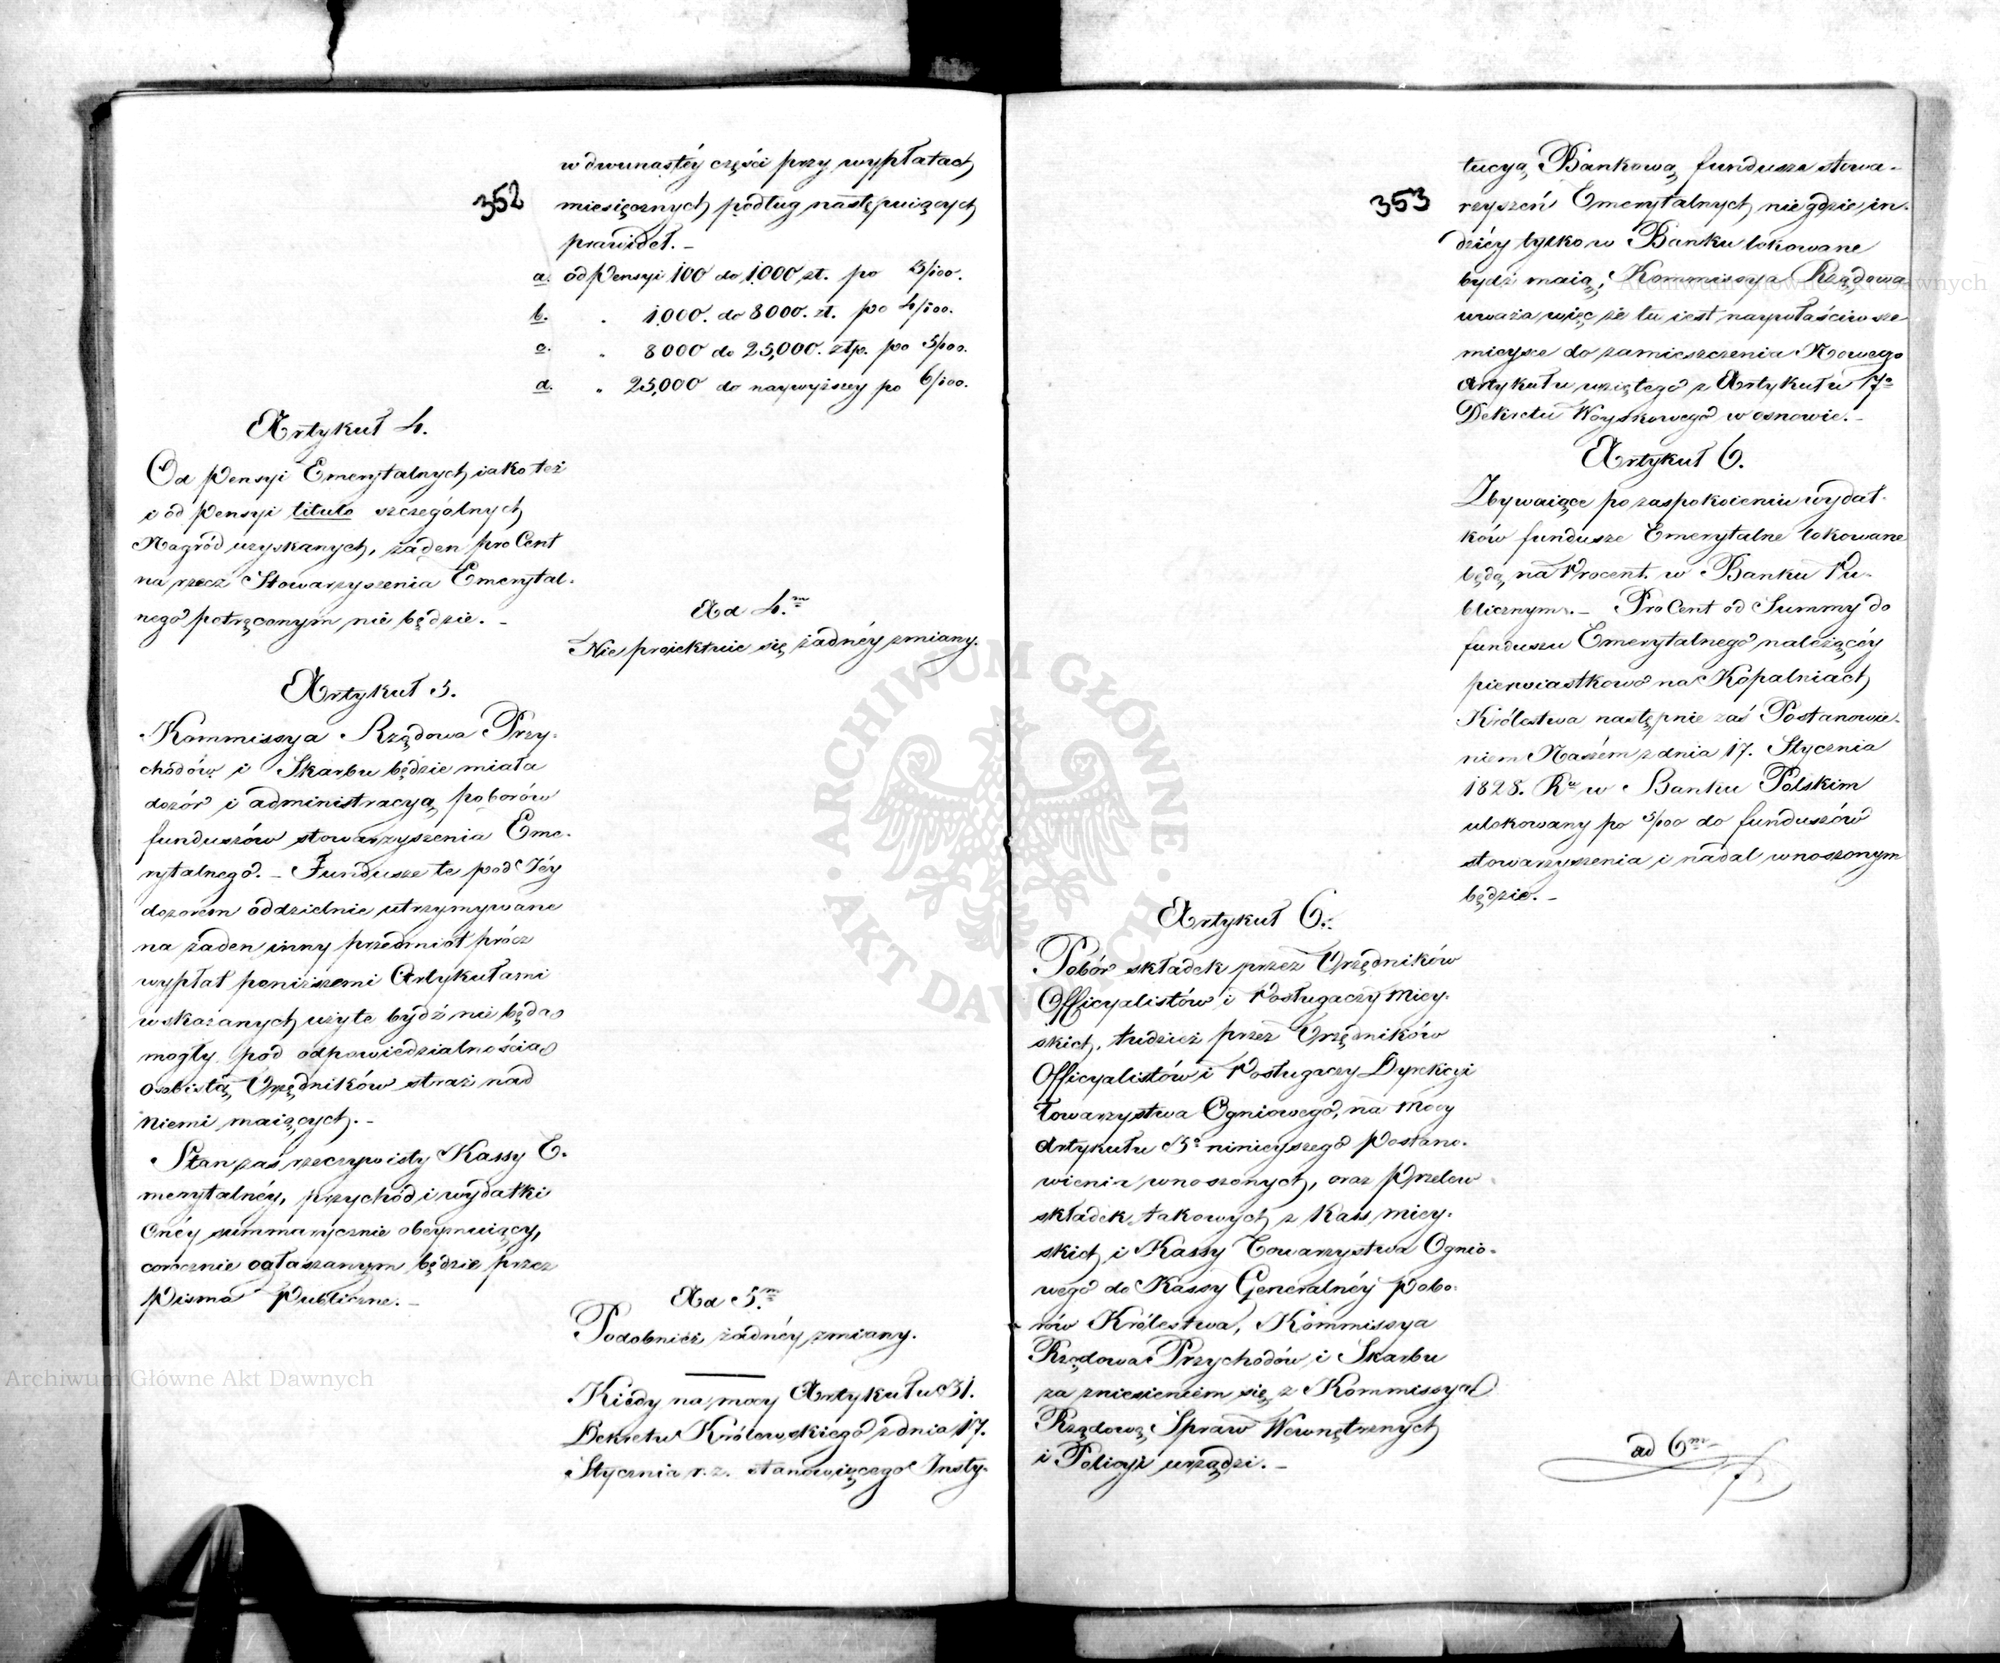 352
w dwunastéy części przy wypłatach
miesięcznych podług następuiących
prawideł. –
a. od Pensyi 100 do 1000 zł. po 3/100.
b. " 1000. do 8000. zł. po 4/100.
c. " 8000 do 25,000. złp. po 5/100.
d. " 25,000 do naywyższey po 6/100.
Artykuł 4.
Od Pensyi Emerytalnych iako też
i od Pensyi titulo szczególnych
Nagród uzyskanych, żaden proCent
na rzecz Stowarzyszenia Emerytal-
nego potrąconym nie będzie. –
Ad 4.m
Nie proiektuie się żadnéy zmiany.
Artykuł 5.
Kommissya Rządowa Przy-
chodów i Skarbu będzie miała
dozór i administracyą poborów
funduszów stowarzyszenia Eme-
rytalnego. – Fundusze te pod Jéy
dozorem oddzielnie utrzymywane
na żaden inny przedmiot prócz
wypłat poniższemi Artykułami
wskazanych użyte bydź nie będą
mogły pod odpowiedzialnością
osobistą Urzędników straż nad
niemi maiących. –
Stan zaś rzeczywisty Kassy E-
merytalnéy, przychód i wydatki
Onéy summarycznie obeymuiący,
corocznie ogłaszanym będzie przez
Pisma Publiczne. –
Ad 5.m
Podobnież żadnéy zmiany.
Kiedy na mocy Artykułu 31.
Dekretu Królewskiego z dnia 17.
Stycznia r. z. stanowiącego Insty-
353
tucyą Bankową fundusze stowa-
rzyszeń Emerytalnych nie gdzie in-
dziéy tylko w Banku lokowane
bydź maią; Kommissya Rządowa
uważa więc że tu iest naywłaściwsze
mieysce do zamieszczenia Nowego
Artykułu wziętego z Artykułu 17o
Dekretu Woyskowego w osnowie. –
Artykuł 6.
Zbywaiące po zaspokoieniu wydat-
ków fundusze Emerytalne lokowane
będą na Procent. w Banku Pu-
blicznym. – ProCent od Summy do
funduszu Emerytalnego należącéy
pierwiastkowo na Kopalniach
Królestwa następnie zaś Postanowie-
niem Naszém z dnia 17. Stycznia
1828. Ru w Banku Polskim
ulokowany po 5/100 do funduszów
stowarzyszenia i nadal wnoszonym
będzie. –
Artykuł 6.
Pobór składek przez Urzędników
Officyalistów i Posługaczy miey-
skich, tudzież przez Urzędników
Officyalistów i Posługaczy Dyrekcyi
Towarzystwa Ogniowego, na mocy
Artykułu 3o ninieyszego Postano-
wienia wnoszonych, oraz Przelew
składek takowych z Kass miey-
skich i Kassy Towarzystwa Ognio-
wego do Kassy Generalnéy Pobo-
rów Królestwa, Kommissya
Rządowa Przychodów i Skarbu
za zniesieniem się z Kommissyą
Rządową Spraw Wewnętrznych
i Policyi urządzi. –
ad 6m
ARCHIWUM GŁÓWNE AKT DAWNYCH
Archiwum Główne Akt Dawnych
Archiwum Główne Akt Dawnych